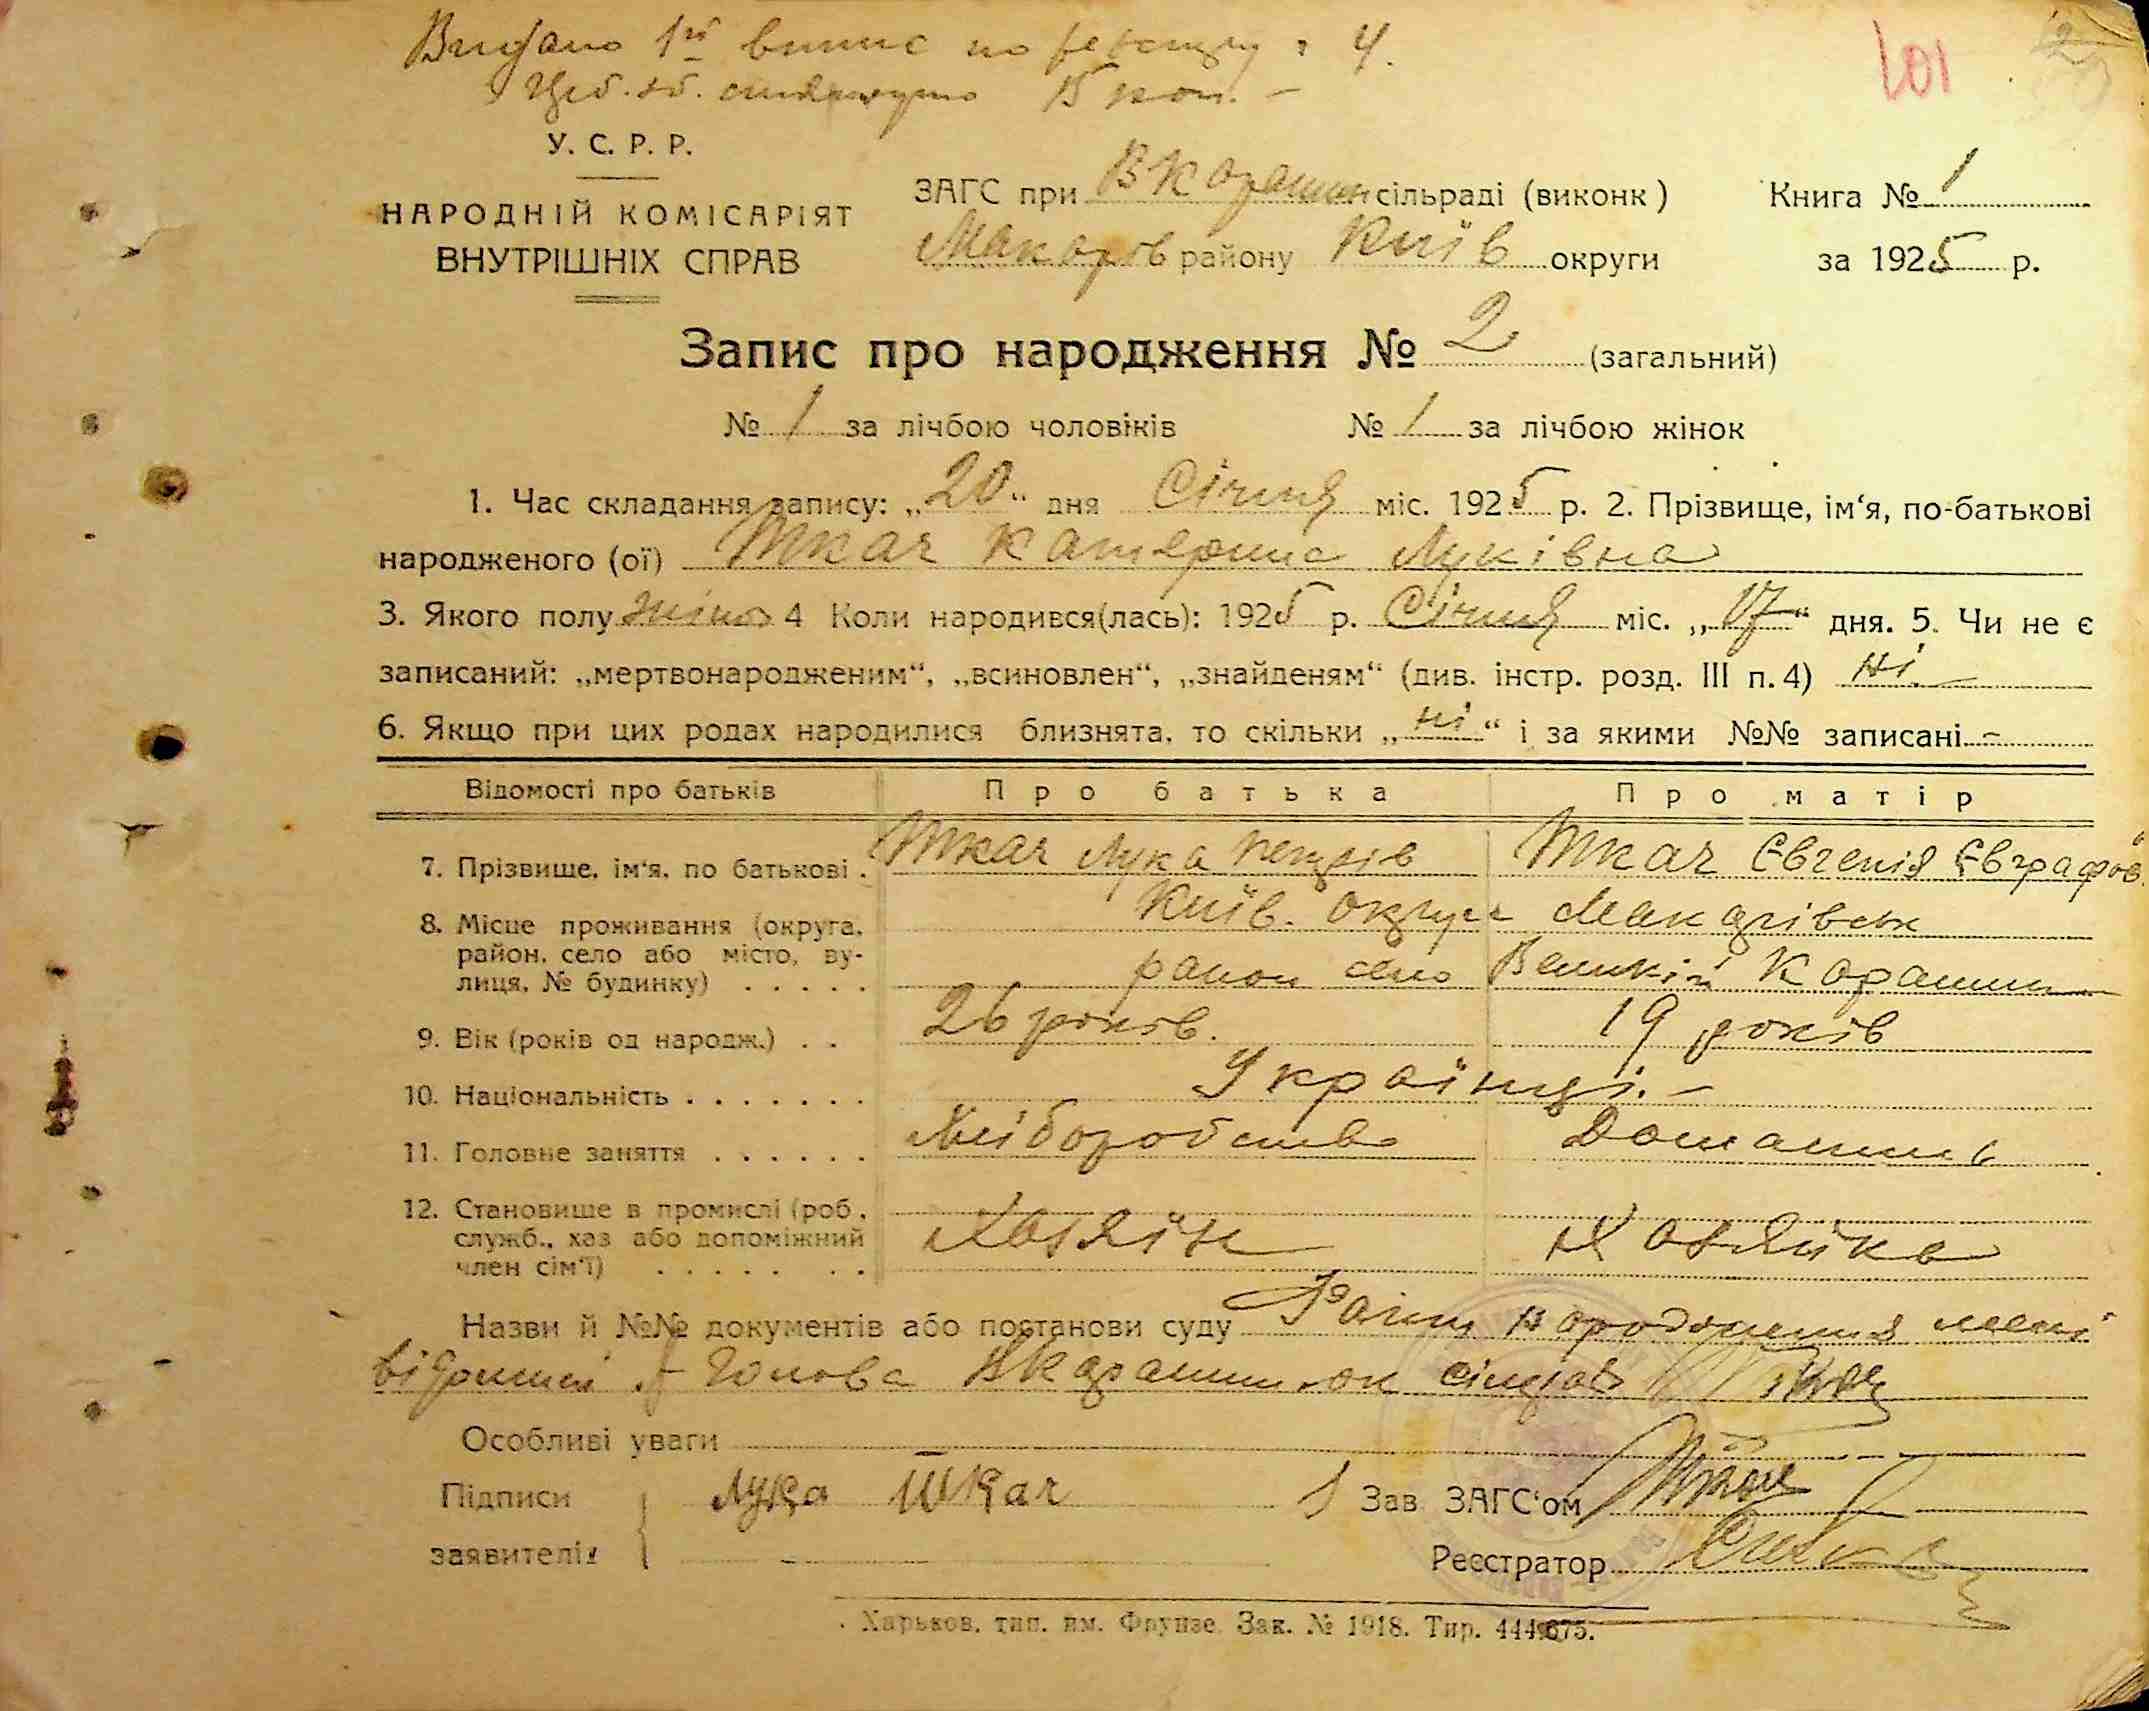 Видано 1й випис по реєстру № 4.
стягнуто 15 коп. –
101
У. С. Р. Р.
НАРОДНІЙ КОМІСАРІЯТ
ВНУТРІШНІХ СПРАВ
ЗАГС при ВКарашин сільраді (виконк)
Макарів району Київ округи
Книга № 1
за 1925 р.
Запис про народження № 2 (загальний)
№ 1 за лічбою чоловіків № 1 за лічбою жінок
1. Час складання запису: „20“ дня Січня міс. 1925 р. 2. Прізвище, ім‘я, по-батькові
народженого (ої) Ткач Катерина Луківна
3. Якого полу жіноч 4 Коли народився(лась): 1925 р. Січня міс. „17“ дня. 5. Чи не є
записаний: „мертвонародженим“, „всиновлен“, „знайденям“ (див. інстр. розд. III п. 4) ні. –
6. Якщо при цих родах народилися близнята, то скільки „ні“ і за якими №№ записані –
Відомості про батьків Про батька Про матір
7. Прізвище, ім‘я, по батькові . Ткач Лука Петрів Ткач Євгенія Євграфов.
8. Місце проживання (округа, район, село або місто, ву-лиця, № будинку) . . . . . Київ. округи Макарівськ
район село Великій Карашин
9. Вік (років од народж.) . . 26 років. 19 років
10. Національність . . . . . . . Українці. –
11. Головне заняття . . . . . . Хліборобство Домашнє
12. Становище в промислі (роб., служб., хаз або допоміжний член сім‘ї) . . . . . . . Хозяїн Хозяйка
Назви й №№ документів або постанови суду Факт народження мені
відомий. Голова ВКарашин. сільради
Особливі уваги –
Підписи
заявителів
Лука Ткач
Зав ЗАГС‘ом
Реєстратор
Харьков, тип. им. Фрунзе. Зак. № 1918. Тир. 444.675.